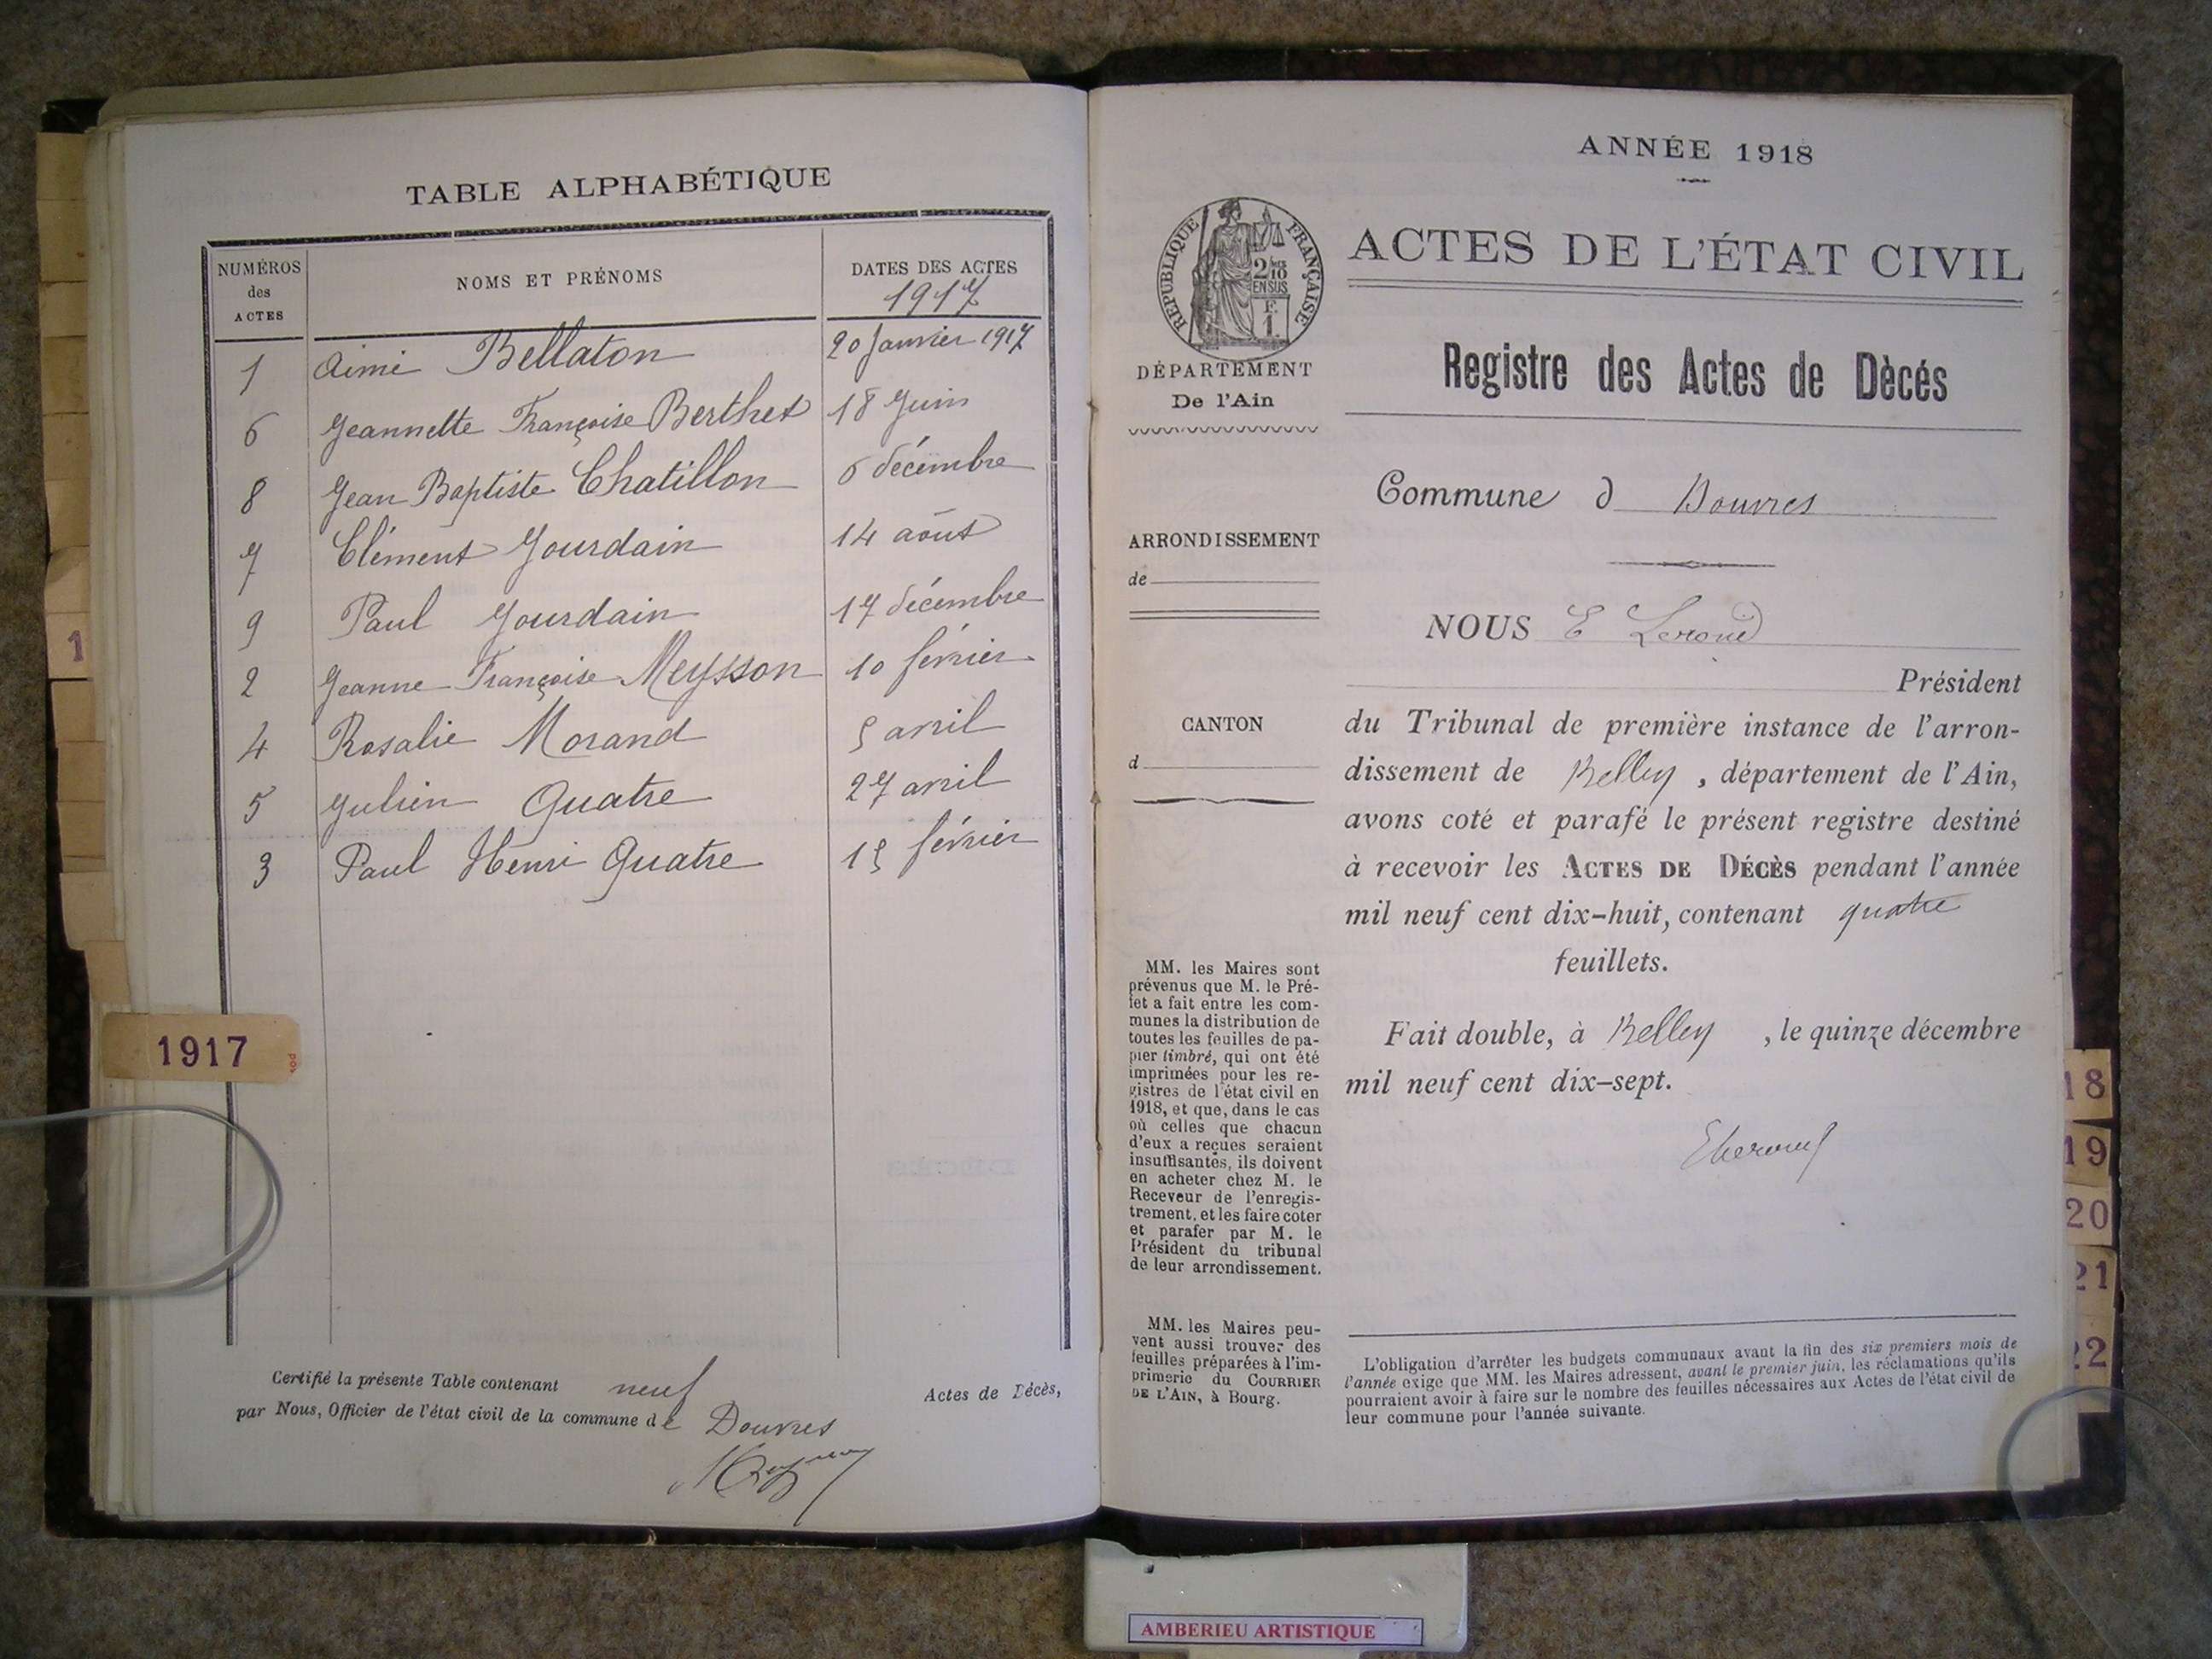 TABLE ALPHABÉTIQUE
NUMÉROS
des
ACTES
NOMS ET PRÉNOMS
DATES DES ACTES
1917
1 Aimé Bellaton 20 Janvier 1917
6 Jeannette Françoise Berthet 18 Juin
8 Jean Baptiste Chatillon 6 décembre
7 Clément Jourdain 14 août
9 Paul Jourdain 17 décembre
2 Jeanne Françoise Meysson 10 février
4 Rosalie Morand 5 avril
5 Julien Quatre 27 avril
3 Paul Henri Quatre 15 février
1
1917
Certifié la présente Table contenant neuf Actes de Décès,
par Nous, Officier de l'état civil de la commune de Douvres
ANNÉE 1918
RÉPUBLIQUE FRANÇAISE
2/10
EN SUS
F.
1.
DÉPARTEMENT
De l'Ain
ARRONDISSEMENT
de
CANTON
d
MM. les Maires sont
prévenus que M. le Pré-
fet a fait entre les com-
munes la distribution de
toutes les feuilles de pa-
pier timbré, qui ont été
imprimées pour les re-
gistres de l'état civil en
1918, et que, dans le cas
où celles que chacun
d'eux a reçues seraient
insuffisantes, ils doivent
en acheter chez M. le
Receveur de l'enregis-
trement, et les faire coter
et parafer par M. le
Président du tribunal
de leur arrondissement.
MM. les Maires peu-
vent aussi trouver des
feuilles préparées à l'im-
primerie du COURRIER
DE L'AIN, à Bourg.
ACTES DE L'ÉTAT CIVIL
Registre des Actes de Dècés
Commune d Douvres
NOUS E
Président
du Tribunal de première instance de l'arron-
dissement de Belley, département de l'Ain,
avons coté et parafé le présent registre destiné
à recevoir les ACTES DE DÉCÈS pendant l'année
mil neuf cent dix-huit, contenant quatre
feuillets.
Fait double, à Belley, le quinze décembre
mil neuf cent dix-sept.
L'obligation d'arrêter les budgets communaux avant la fin des six premiers mois de
l'année exige que MM. les Maires adressent, avant le premier juin, les réclamations qu'ils
pourraient avoir à faire sur le nombre des feuilles nécessaires aux Actes de l'état civil de
leur commune pour l'année suivante.
18
19
20
21
22
AMBERIEU ARTISTIQUE